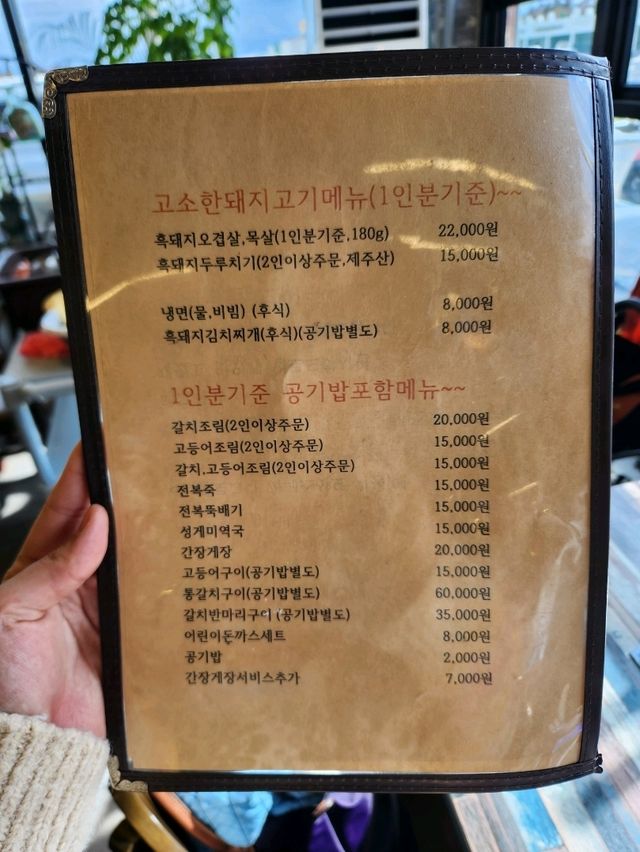 고소한돼지고기메뉴(1인분기준)~~
흑돼지오겹살,목살(1인분기준,180g) 22,000원
흑돼지두루치기(2인이상주문,제주산) 15,000원
냉면(물,비빔) (후식) 8,000원
흑돼지김치찌개(후식)(공기밥별도) 8,000원
1인분기준 공기밥포함메뉴~~
갈치조림(2인이상주문) 20,000원
고등어조림(2인이상주문) 15,000원
갈치,고등어조림(2인이상주문) 15,000원
전복죽 15,000원
전복뚝배기 15,000원
성게미역국 15,000원
간장게장 20,000원
고등어구이(공기밥별도) 15,000원
통갈치구이(공기밥별도) 60,000원
갈치반마리구이 (공기밥별도) 35,000원
어린이돈까스세트 8,000원
공기밥 2,000원
간장게장서비스추가 7,000원